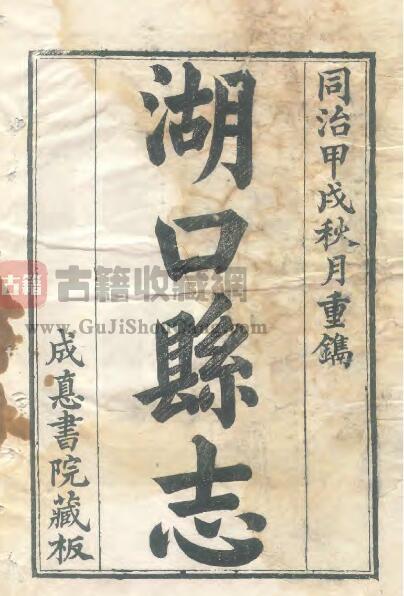 同治甲戌秋月重鐫
湖口縣志
成悳書院藏板
古籍 古籍收藏網
www.GuJiShouCang.com